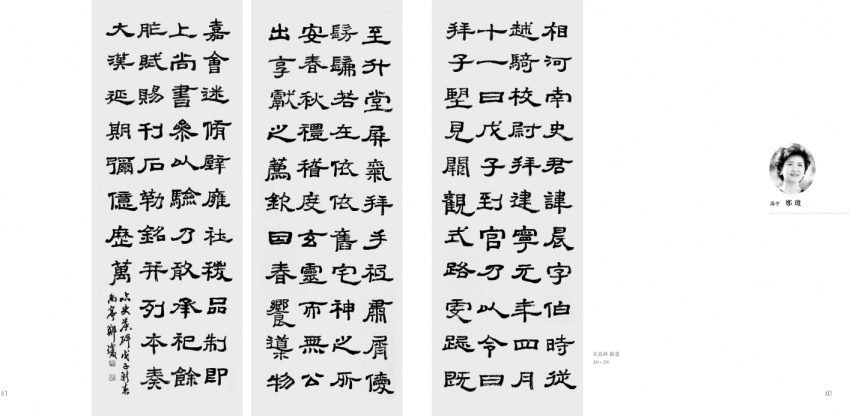 相河南史君諱晨字伯時從
越騎校尉拜建寧元年四月
十一日戊子到官乃以令日
拜子朢見闕觀式路虔跽既
至升堂屏氣拜手祗肅屑僾
髣髴若在依依舊宅神之所
安春秋禮稽度玄靈而無公
出享獻之薦欽因春饗導物
嘉會述脩璧廱社稷品制即
上尚書參以驗乃敢承祀餘
胙賦賜刊石勒銘并列本奏
大漢延期彌億歷萬
史晨碑戊子新春
鄭
史晨碑
60
61